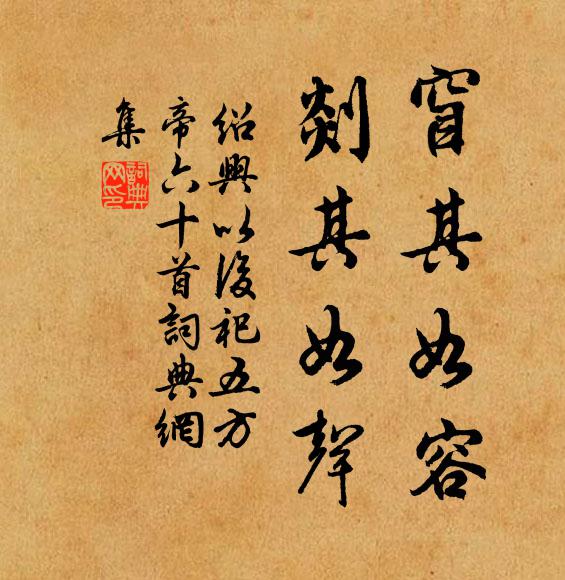 窅其如容
剡其如聲
紹興以後祀五方
帝六十首詞典網
集
詞典
網印